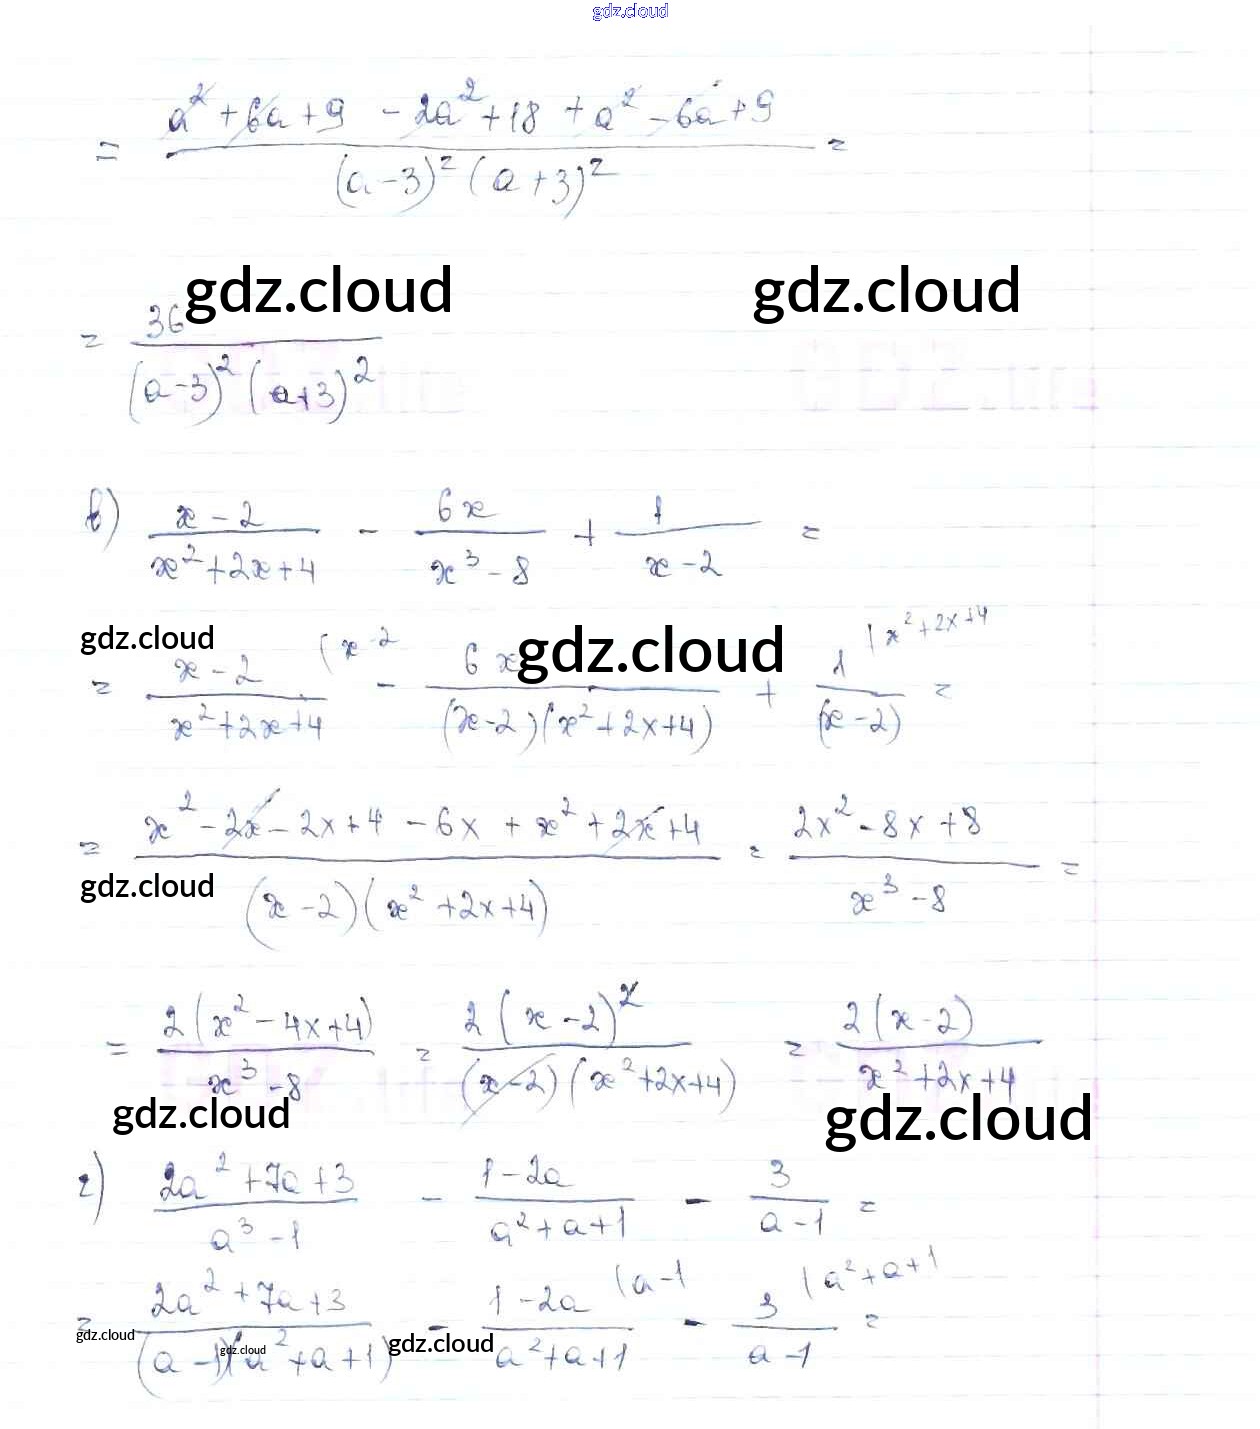 gdz.cloud
= (a² + 6a + 9 - 2a² + 18 + a² - 6a + 9) / ((a-3)² (a+3)²) =
gdz.cloud gdz.cloud
= 36 / ((a-3)² (a+3)²)
в) (x-2)/(x²+2x+4) - 6x/(x³-8) + 1/(x-2) =
gdz.cloud gdz.cloud
= (x-2)/(x²+2x+4) (x-2 - 6x/((x-2)(x²+2x+4)) + 1/(x-2) (x²+2x+4 =
= (x² - 2x - 2x + 4 - 6x + x² + 2x + 4)/((x-2)(x²+2x+4)) = (2x² - 8x + 8)/(x³-8) =
gdz.cloud
= 2(x²-4x+4)/(x³-8) = 2(x-2)²/((x-2)(x²+2x+4)) = 2(x-2)/(x²+2x+4)
gdz.cloud gdz.cloud
г) (2a²+7a+3)/(a³-1) - (1-2a)/(a²+a+1) - 3/(a-1) =
= (2a²+7a+3)/((a-1)(a²+a+1)) - (1-2a)/(a²+a+1) (a-1 - 3/(a-1) (a²+a+1 =
gdz.cloud gdz.cloud gdz.cloud